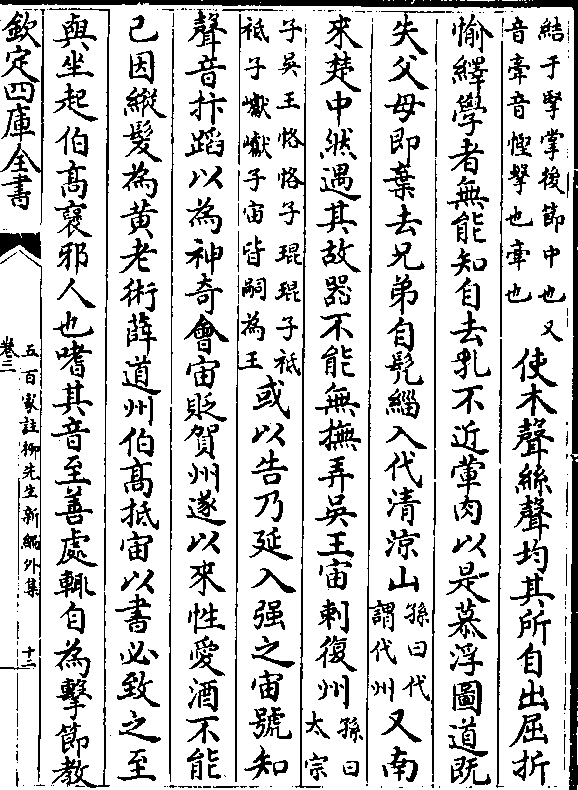 結于掔掌後節中也又
音牽音慳掔也牽也
使木聲絲聲均其所自出屈折
愉繹學者無能知自去乳不近葷肉以是慕浮圖道既
失父母即棄去兄弟自髠緇入代清涼山孫曰代謂代州又南
來楚中然遇其故器不能無撫弄吳王宙刺復州孫曰太宗
子吳王恪恪子琨琨子祗
祗子巘巘子宙皆嗣為王
或以告乃延入强之宙號知
聲音抃蹈以為神奇會宙貶賀州遂以來性愛酒不能
已因縱髮為黄老術薛道州伯髙抵宙以書必致之至
與坐起伯髙裒邪人也嗜其音至善處輒自為擊節教
欽定四庫全書
五百家註柳先生新編外集
卷三
十二